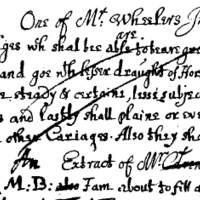 One of Mr. Wheelers
ges wh shall bee able to beare grea
are
and goe wth lesser draught of Hor
e steady & certaine, lesse subject
s and lastly shall plaine or eve
other Cariages. Also they sha
Extract of Mr
M: B: also I am about to fill a